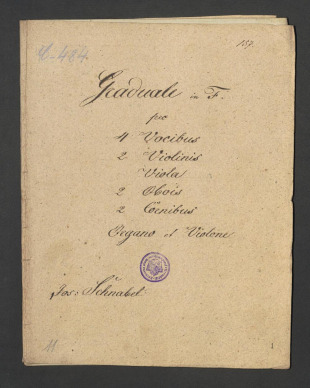 157.
Graduale in F.
pro
4 Vocibus
2 Violinis
Viola
2 Obois
2 Cornibus
Organo et Violone
Jos: Schnabel
11